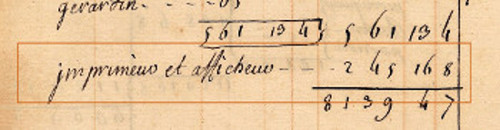 gerardin - - - 65
561 13 4 5 61 13 4
jmprimeur et afficheur - - - 2 45 16 8
8 139 4 7